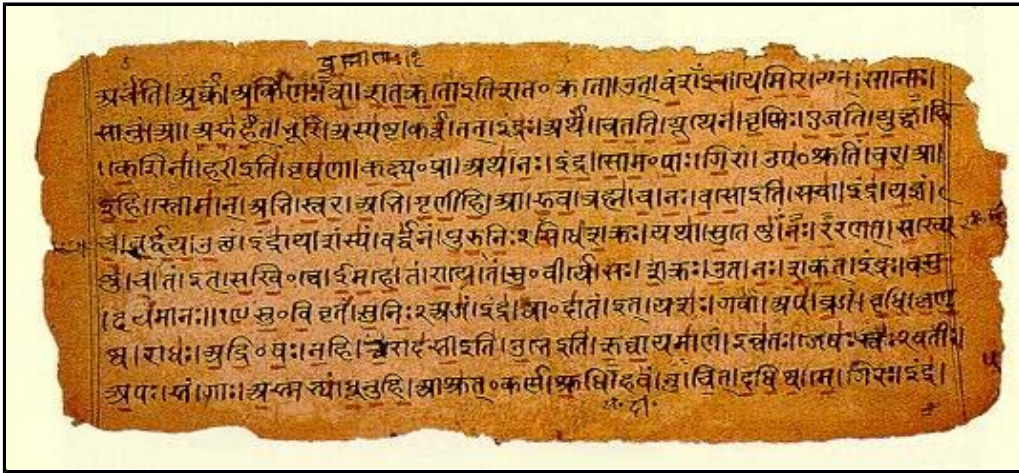 ब्रह्माणः।१
अर्चंति।अर्कं।अर्किणः।त्वा।शतक्रतोऽइतिशत॰क्रतो।उत्।वंशंऽइव।येमिरे।यत्।सानोः।
सानुं।आ।अरुहत्।भूरि।अस्पष्ट।कर्त्वं।तत्।इंद्रः।अर्थं।चेतति।यूथेन।वृष्णिः।एजति।युक्ष्व।हि
।केशिना।हरीऽइति।वृषणा।कक्ष्य॰प्रा।अथ।नः।इंद्र।सोम॰पाः।गिरां।उप॰श्रुतिं।चर।आ
इहि।स्तोमान्।अभि।स्वर।अभि।गृणीहि।आ।रुव।ब्रह्म।च।नः।वसोऽइति।सचा।इंद्र।यज्ञं।
च।वर्द्धय।उक्थं।इंद्राय।शंस्यं।वर्द्धनं।पुरुनिःऽसिधे।शक्रः।यथा।सुतेषु।नः।ररणत्।सख्ये
षु।च।तं।इत्।सखि॰त्वे।ईमहे।तं।राये।तं।सु॰वीर्ये।सः।शक्रः।उत।नः।शकत्।इंद्रः।वसु
।दयमानः॥१९ सु॰विवृतं।सुनिःऽअजं।इंद्र।त्वा॰दातं।इत्।यशः।गवां।अप।व्रजं।वृधि।कृणु
ष्व।राधः।अद्रि॰वः।नहि।त्वा।रोदसीऽइति।उभेऽइति।ऋघायमाणं।इन्वतः।जेषः।स्वःऽवतीः।
अपः।सं।गाः।अस्मभ्यं।धूनुहि।आश्रुत्॰कर्ण।श्रुधि।हवं।नु।चित्।दधिष्व।मे।गिरः।इंद्र।